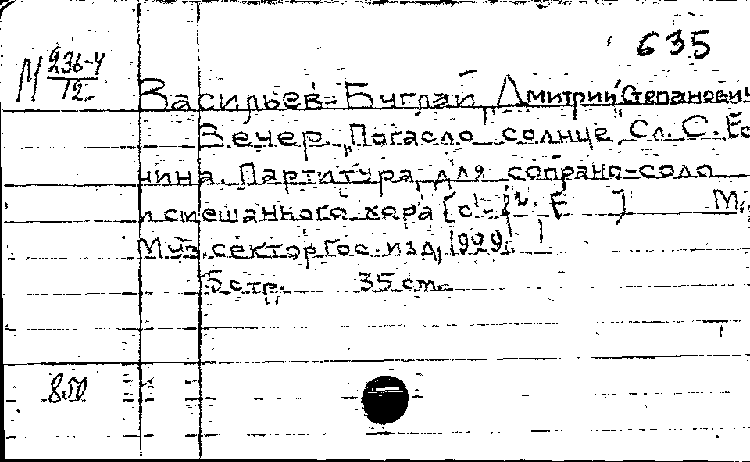 635
М 236-4
12.
Васильев-Буглай, Дмитрий Степанович
Вечер „Погасло солнце" Сл. С. Есе
нина. Партитура для сопрано-соло
и смешанного хора [c-
М.,
Муз. сектор Гос. изд, 1929.
5 стр. 35 см.
850